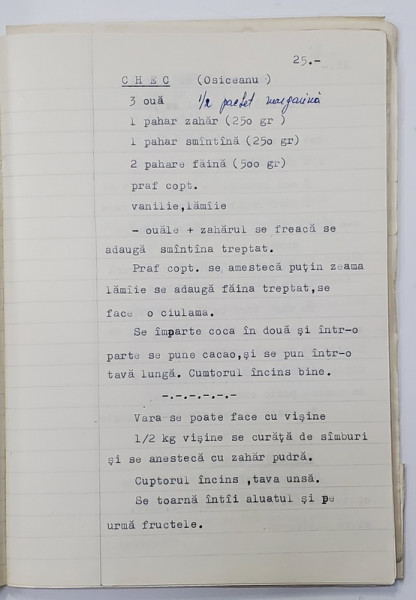 25.-
C H E C (Osiceanu )
3 ouă 1/2 pachet margarină
1 pahar zahăr (250 gr )
1 pahar smîntînă (250 gr)
2 pahare făină (500 gr)
praf copt.
vanilie,lămîie
- ouăle + zahărul se freacă se
adaugă smîntîna treptat.
Praf copt. se amestecă puțin zeama
lămîie se adaugă făina treptat,se
face o ciulama.
Se împarte coca în două și într-o
parte se pune cacao,și se pun într-o
tavă lungă. Cumtorul încins bine.
-.-.-.-.-.-
Vara se poate face cu vișine
1/2 kg vișine se curăță de sîmburi
și se anestecă cu zahăr pudră.
Cuptorul încins ,tava unsă.
Se toarnă întîi aluatul și pe
urmă fructele.